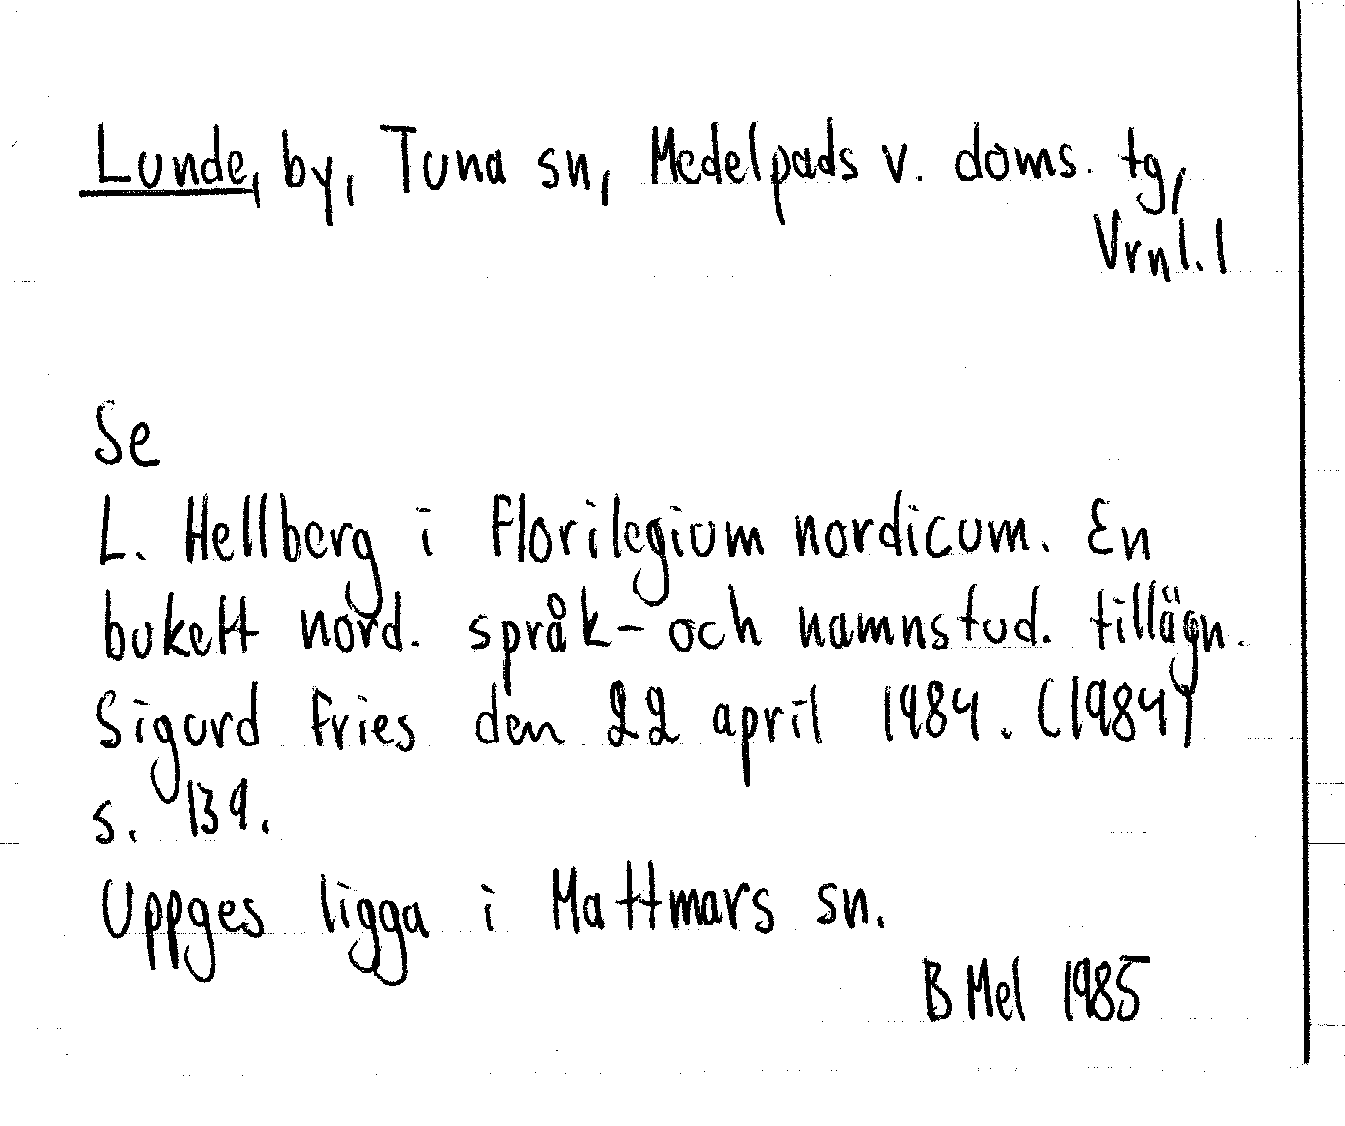 Lunde, by, Tuna sn, Medelpads v. doms. tg,
Vrnl. l
Se
L. Hellberg i Florilegium nordicum. En
bukett nord. språk- och namnstud. tillägn.
Sigurd Fries den 22 april 1984. (1984)
s. 139.
Uppges ligga i Mattmars sn.
B Mel 1985